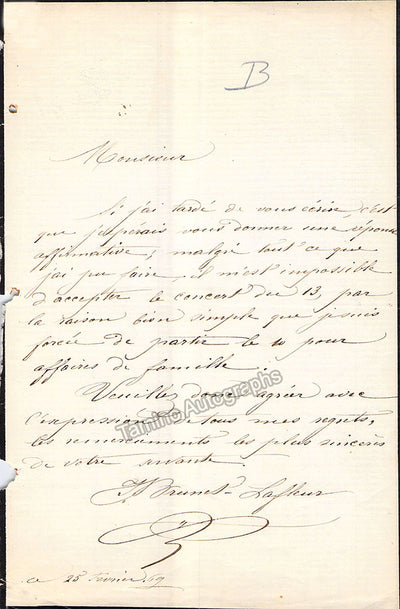 B
Monsieur
Si j'ai tardé de vous écrire, c'est
que j'esperais vous donner une réponse
affirmative; malgré tout ce que
j'ai pu faire, il m'est impossible
d'accepter le concert du 13, par
la raison bien simple que je suis
forcée de partir le 10 pour
affaires de famille.
Veuillez donc agréer avec
l'expression de tous mes regrets,
les remerciements les plus sincères
de votre servante.
Brunet-Lafleur
ce 25 Février 69
Tamino Autographs